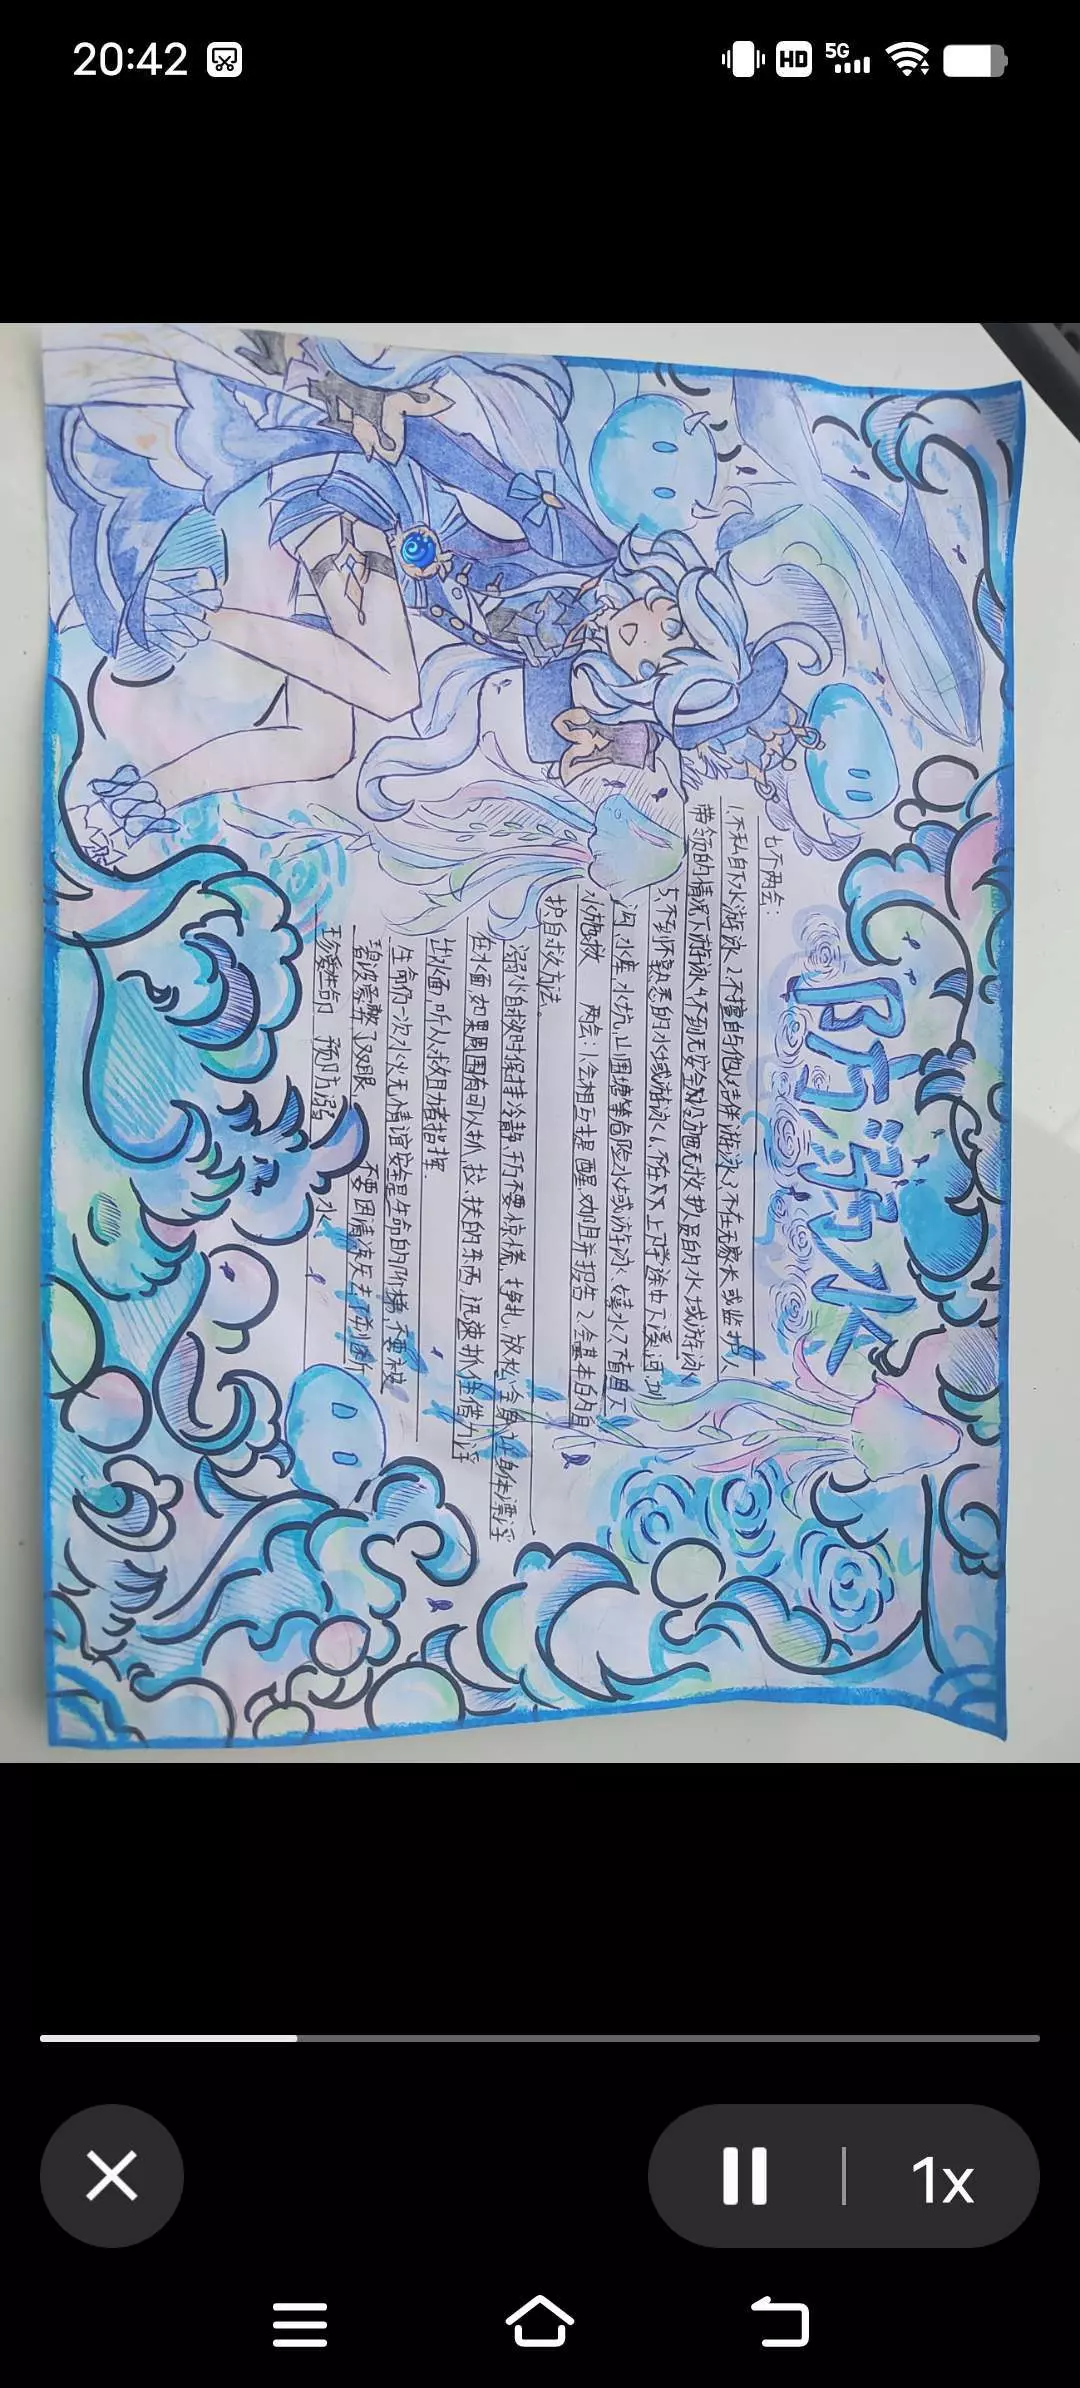 20:42
HD
5G
防溺水
七不两会:
1.不私自下水游泳2.不擅自与他人结伴游泳3.不在无家长或监护人
带领的情况下游泳4.不到无安全设施无救护人员的水域游泳
5.不到不熟悉的水域游泳6.不在上下学途中下溪河、圳
沟、水库、水坑、山围塘等危险水域游泳、嬉水7.不盲目下
水施救 两会:1.会相互提醒、劝阻并报告2.会基本的自
护自救方法。
溺水自救时保持冷静,千万不要惊慌、挣扎,放松全身,让身体漂浮
在水面,如果周围有可以抓、拉、扶的东西,迅速抓住借力浮
出水面,听从救助者指挥.
生命仍一次水火无情谊安全是生命的阶梯,不要被
碧波荡漾了双眼, 不要因清凉失去了判断
珍爱生命 预防溺
水
1x